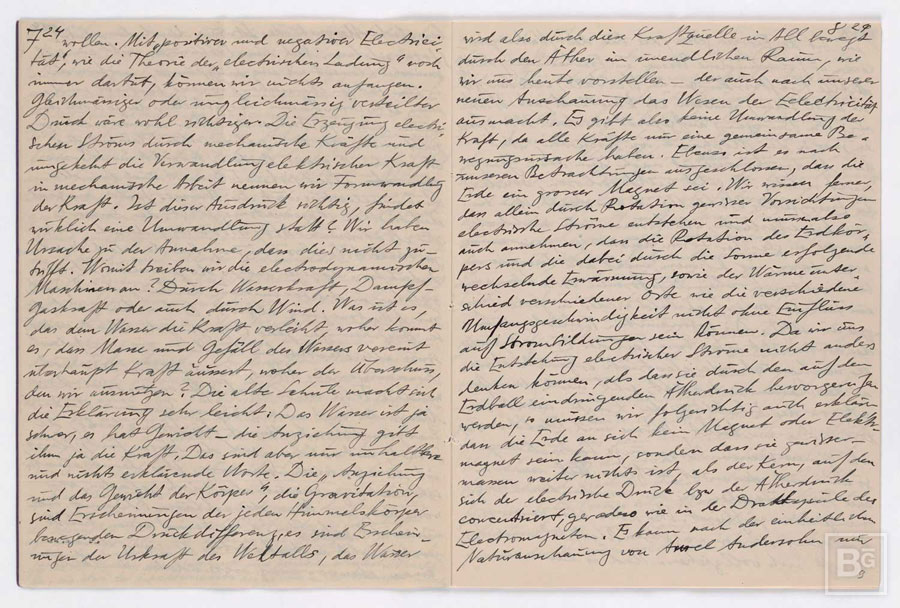 724
wollen. Mit „positiver und negativer Electrici-
tät“, wie die Theorie der „electrischen Ladung“ noch
immer dartut, können wir nichts anfangen.
Gleichmässiger oder ungleichmässig verteilter
Druck wäre wohl richtiger. Die Erzeugung electri-
schen Stroms durch mechanische Kräfte und
umgekehrt die Verwandlung elektrischer Kraft
in mechanische Arbeit nennen wir Formwandlg
der Kraft. Ist dieser Ausdruck richtig, findet
wirklich eine Umwandlung statt? Wir haben
Ursache zu der Annahme, dass dies nicht zu-
trifft. Womit treiben wir die electrodynamischen
Maschinen an? Durch Wasserkraft, Dampf-
Gaskraft oder auch durch Wind. Was ist es,
das dem Wasser die Kraft verleiht, woher kommt
es, dass Masse und Gefäll des Wassers vereint
überhaupt Kraft äussert, woher der Überschuss,
den wir ausnutzen? Die alte Schule macht sich
die Erklärung sehr leicht: Das Wasser ist ja
schwer, es hat Gewicht – die Anziehung gibt
ihm ja die Kraft. Das sind aber nur unhaltbare
und nichts erklärende Worte. Die „Anziehung
und das Gewicht der Körper“, die Gravitation,
sind Erscheinungen der jeden Himmelskörper
bewegenden Druckdifferenz, es sind Erschei-
nungen der Urkraft des Weltalls, das Wasser
8 29
wird also durch diese Kraftquelle im All bewegt
durch den Äther im unendlichen Raum, wie
wir uns heute vorstellen – der auch nach unserer
neuen Anschauung das Wesen der Eelectricität
ausmacht. Es gibt also keine Umwandlung der
Kraft, da alle Kräfte nur eine gemeinsame Be-
wegungsursache haben. Ebenso ist es nach
unseren Betrachtungen ausgeschlossen, dass die
Erde ein grosser Magnet sei. Wir wissen ferner,
dass allein durch Rotation gewisser Vorrichtungen
electrische Ströme entstehen und muss also
auch annehmen, dass die Rotation des Erdkör-
pers und die dabei durch die Sonne erfolgende
wechselnde Erwärmung, sowie der Wärmeunter-
schied verschiedener Orte wie die verschiedene
Umfangsgeschwindigkeit nicht ohne Einfluss
auf Strombildungen sein können. Da wir uns
die Entstehung electrischer Ströme nicht anders
denken können, als dass sie durch den auf den
Erdball eindringenden Ätherdruck hervorgerufen
werden, so müssen wir folgerichtig auch erklären
dass die Erde an sich kein Magnet oder Elektro-
magnet sein kann, sondern dass sie gewisser-
massen weiter nichts ist, als der Kern, auf den
sich der electrische Druck bzw der Ätherdruck
concentriert, geradeso wie in der Drahtspule des
Electromagneten. Es kann nach der einheitlichen
Naturanschauung von Aurel Anderssohn nur
BG